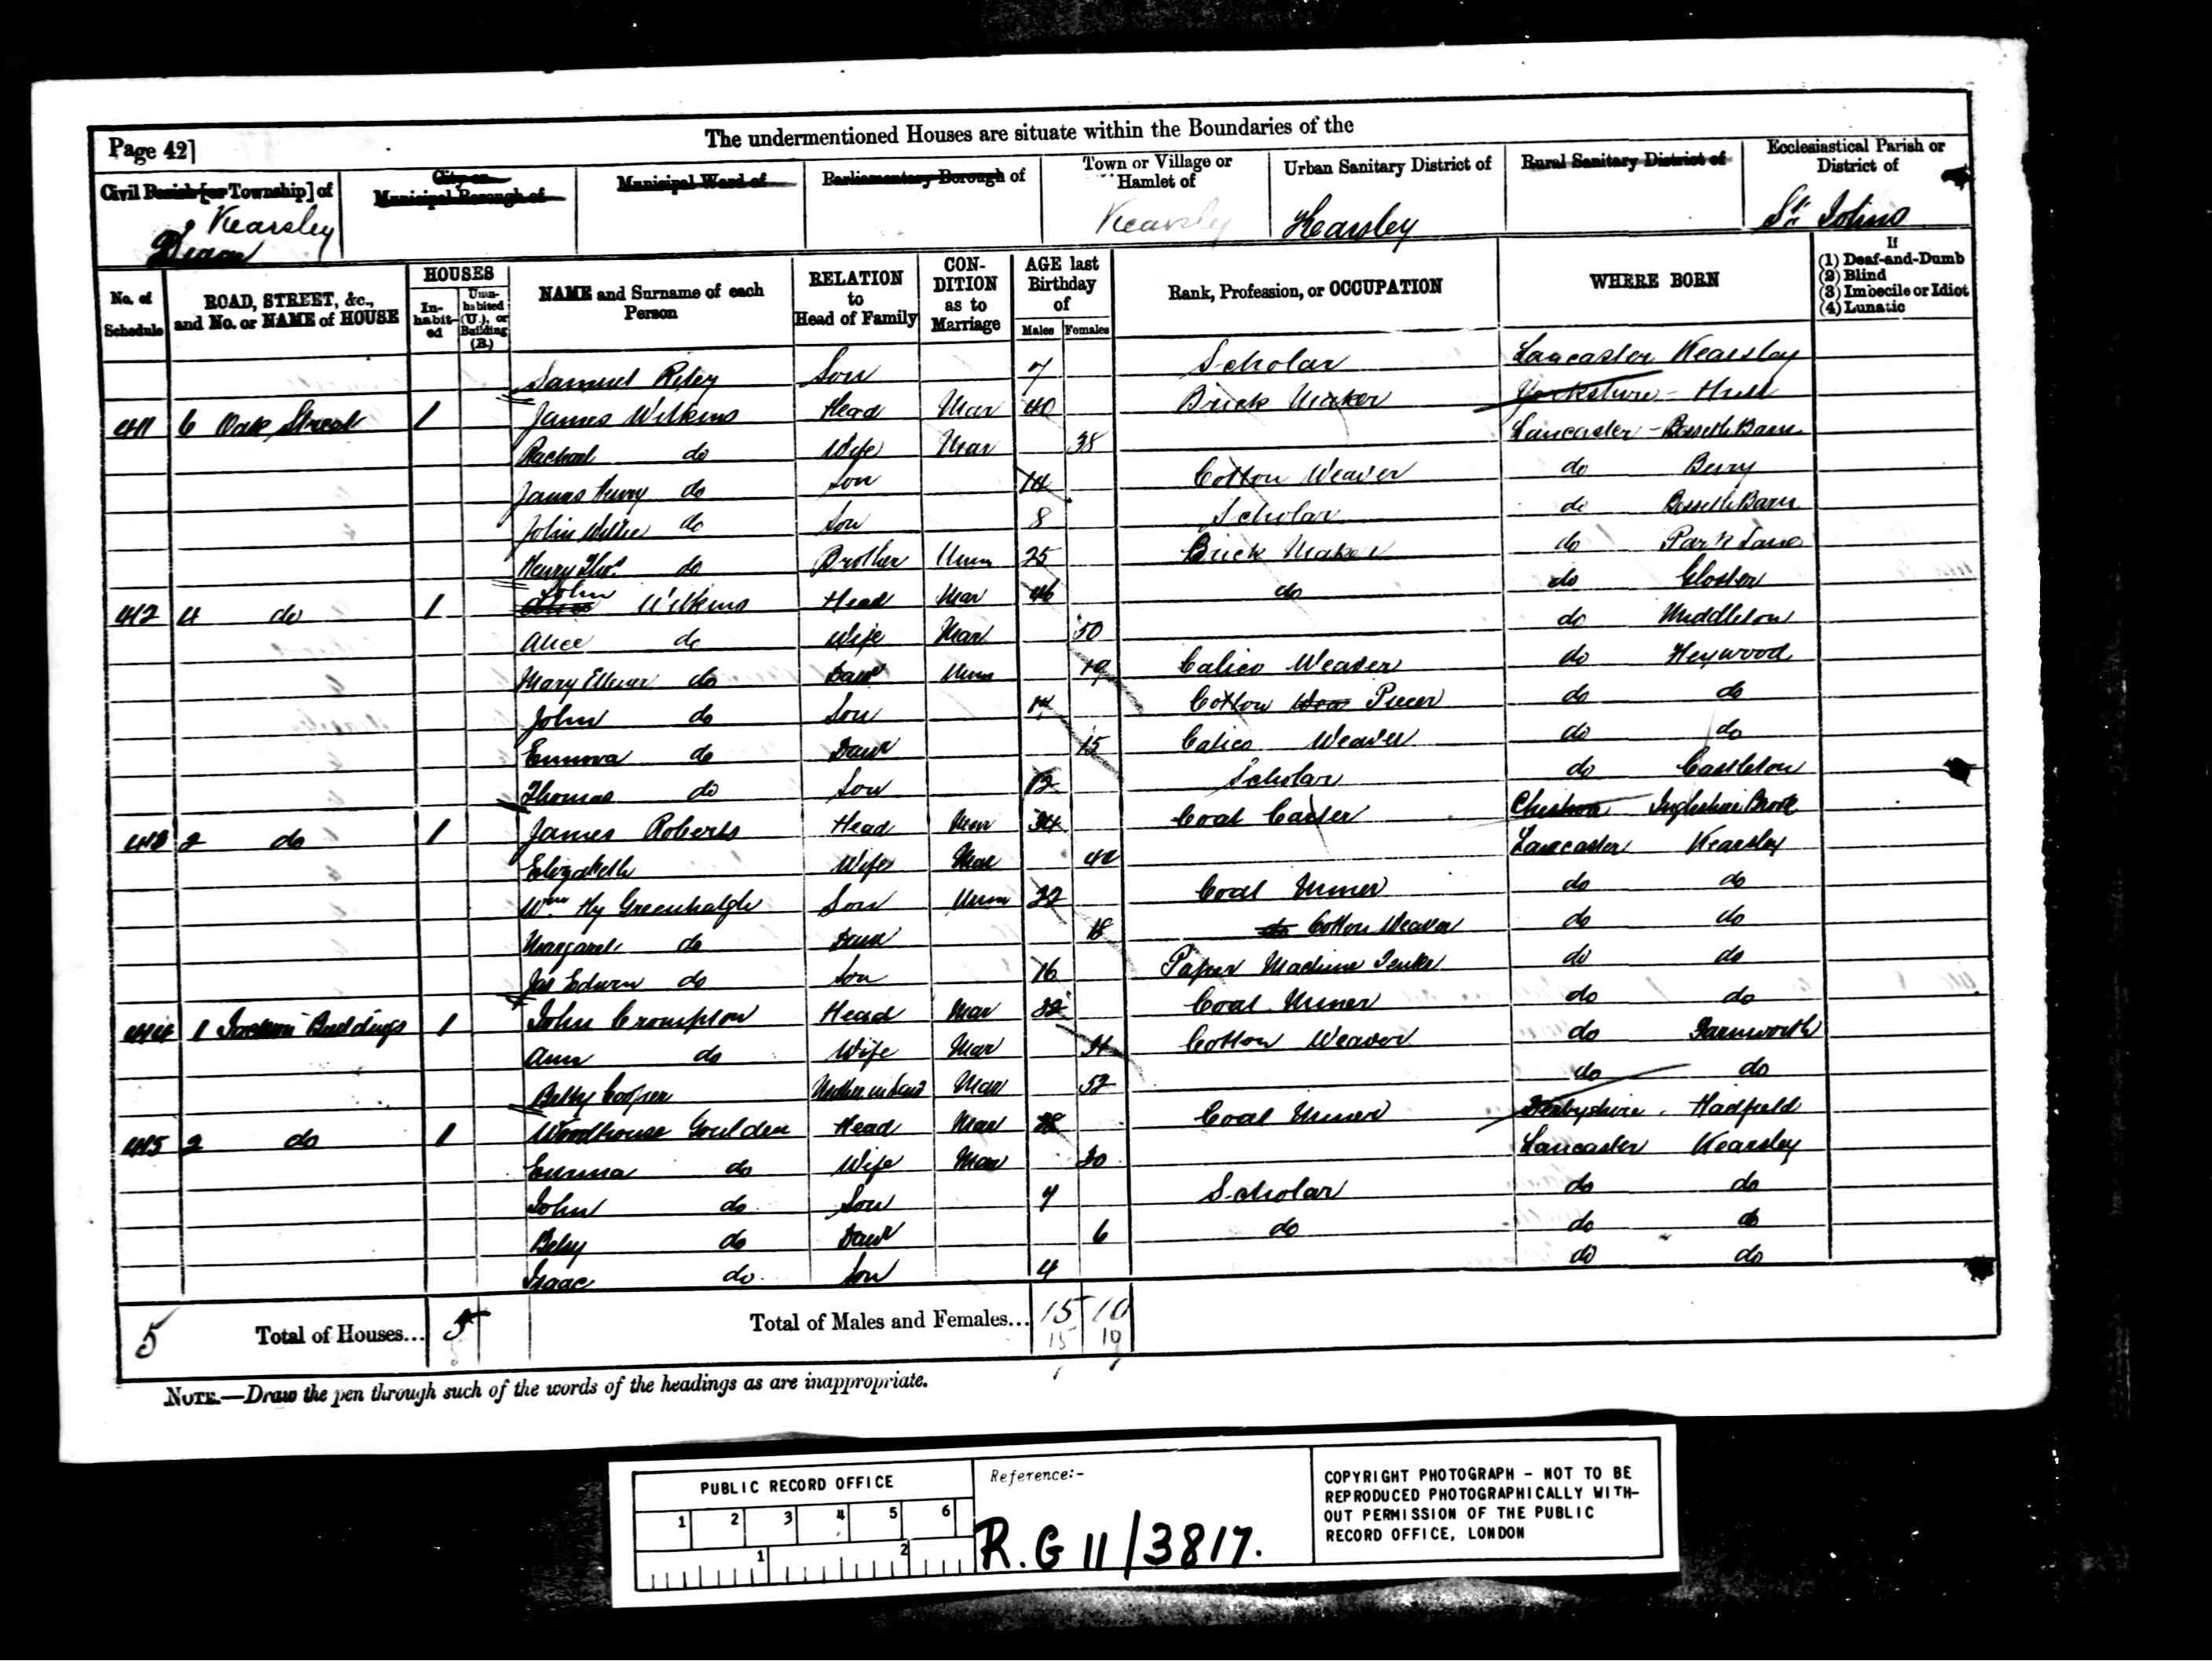 Page 42]
The undermentioned Houses are situate within the Boundaries of the
Civil Parish [or Township] of Kearsley Dean
City or Municipal Borough of
Municipal Ward of
Parliamentary Borough of
Town or Village or Hamlet of Kearsley
Urban Sanitary District of Kearsley
Rural Sanitary District of
Ecclesiastical Parish or District of St Johns
No. of Schedule
ROAD, STREET, &c., and No. or NAME of HOUSE
HOUSES
Inhabited
Uninhabited (U.), or Building (B.)
NAME and Surname of each Person
RELATION to Head of Family
CONDITION as to Marriage
AGE last Birthday of
Males Females
Rank, Profession, or OCCUPATION
WHERE BORN
If
(1) Deaf-and-Dumb
(2) Blind
(3) Imbecile or Idiot
(4) Lunatic
Samuel Riley Son 7 Scholar Lancaster Kearsley
411 6 Oak Street 1 James Wilkins Head Mar 40 Brick Maker Yorkshire - Hull
Rachael do Wife Mar 38 Lancaster -
James Henry do Son 14 Cotton Weaver do Bury
John Willie do Son 8 Scholar do
Henry Thos. do Brother Unm 25 Brick Maker do Park Lane
412 4 do 1 Alice John Wilkins Head Mar 46 do do Gloster
Alice do Wife Mar 50 do Middleton
Mary Ellener do Daur Unm 19 Calico Weaver do Heywood
John do Son Cotton Wea Piecer do do
Emma do Daur 15 Calico Weaver do do
Thomas do Son 12 Scholar do Castleton
413 2 do 1 James Roberts Head Mar 34 Coal Carter Cheshire Brook
Elizabeth Wife Mar 42 Lancaster Kearsley
Wm Hy Greenhalgh Son Unm 22 Coal Miner do do
Margaret do Daur 18 do Cotton Weaver do do
Jas Edwin do Son 16 Paper Machine Tenter do do
414 1 Buildings 1 John Crompton Head Mar 32 Coal Miner do do
Ann do Wife Mar 31 Cotton Weaver do Farnworth
Betty Cooper Mother in Law Mar 52 do do
415 2 do 1 Woodhouse Goulden Head Mar 28 Coal Miner Derbyshire. Hadfield
Emma do Wife Mar 30 Lancaster Kearsley
John do Son 7 Scholar do do
Betsy do Daur 6 do do do
Isaac do Son 4 do do
5 Total of Houses... 5
Total of Males and Females... 15 10
15 10
NOTE.—Draw the pen through such of the words of the headings as are inappropriate.
PUBLIC RECORD OFFICE
1 2 3 4 5 6
1 2
Reference:-
R.G 11/3817.
COPYRIGHT PHOTOGRAPH - NOT TO BE
REPRODUCED PHOTOGRAPHICALLY WITH-
OUT PERMISSION OF THE PUBLIC
RECORD OFFICE, LONDON